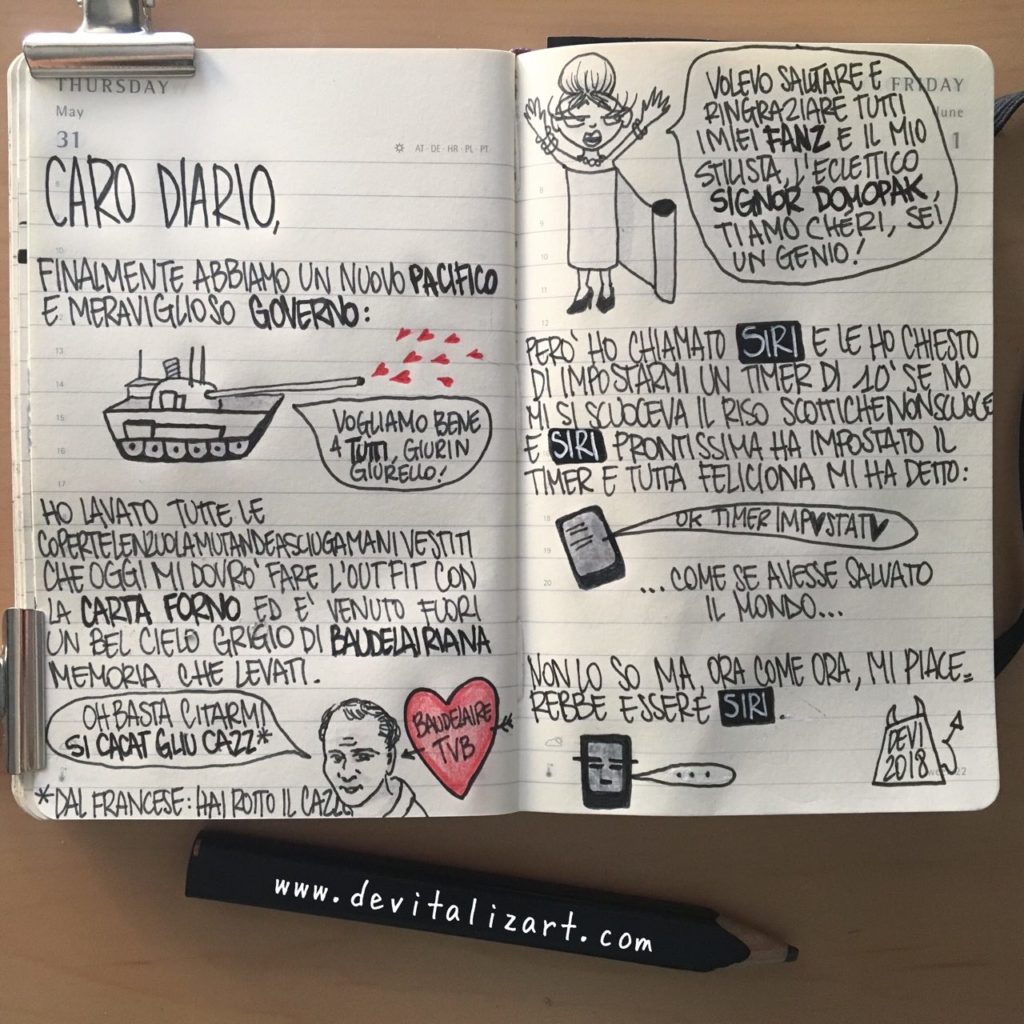 THURSDAY
May
31
AT · DE · HR · PL · PT
CARO DIARIO,
FINALMENTE ABBIAMO UN NUOVO PACIFICO
E MERAVIGLIOSO GOVERNO:
VOGLIAMO BENE
A TUTTI, GIURIN
GIURELLO!
HO LAVATO TUTTE LE
COPERTELENZUOLAMUTANDEASCIUGAMANIVESTITI
CHE OGGI MI DOVRO' FARE L'OUTFIT CON
LA CARTA FORNO ED E' VENUTO FUORI
UN BEL CIELO GRIGIO DI BAUDELAIRIANA
MEMORIA CHE LEVATI.
OH BASTA CITARMI
SI CACAT GLIU CAZZ*
BAUDELAIRE
TVB
*DAL FRANCESE: HAI ROTTO IL CAZZO
FRIDAY
June
1
VOLEVO SALUTARE E
RINGRAZIARE TUTTI
I MIEI FANZ E IL MIO
STILISTA, L'ECLETTICO
SIGNOR DOMOPAK,
TI AMO CHÉRI, SEI
UN GENIO!
PERO' HO CHIAMATO SIRI E LE HO CHIESTO
DI IMPOSTARMI UN TIMER DI 10' SE NO
MI SI SCUOCEVA IL RISO SCOTTICHENONSCUOCE
E SIRI PRONTISSIMA HA IMPOSTATO IL
TIMER E TUTTA FELICIONA MI HA DETTO:
OK TIMER IMPOSTATO
...COME SE AVESSE SALVATO
IL MONDO...
NON LO SO MA ORA COME ORA, MI PIACE=
REBBE ESSERE SIRI.
...
DEVI
2018
22
www.devitalizart.com